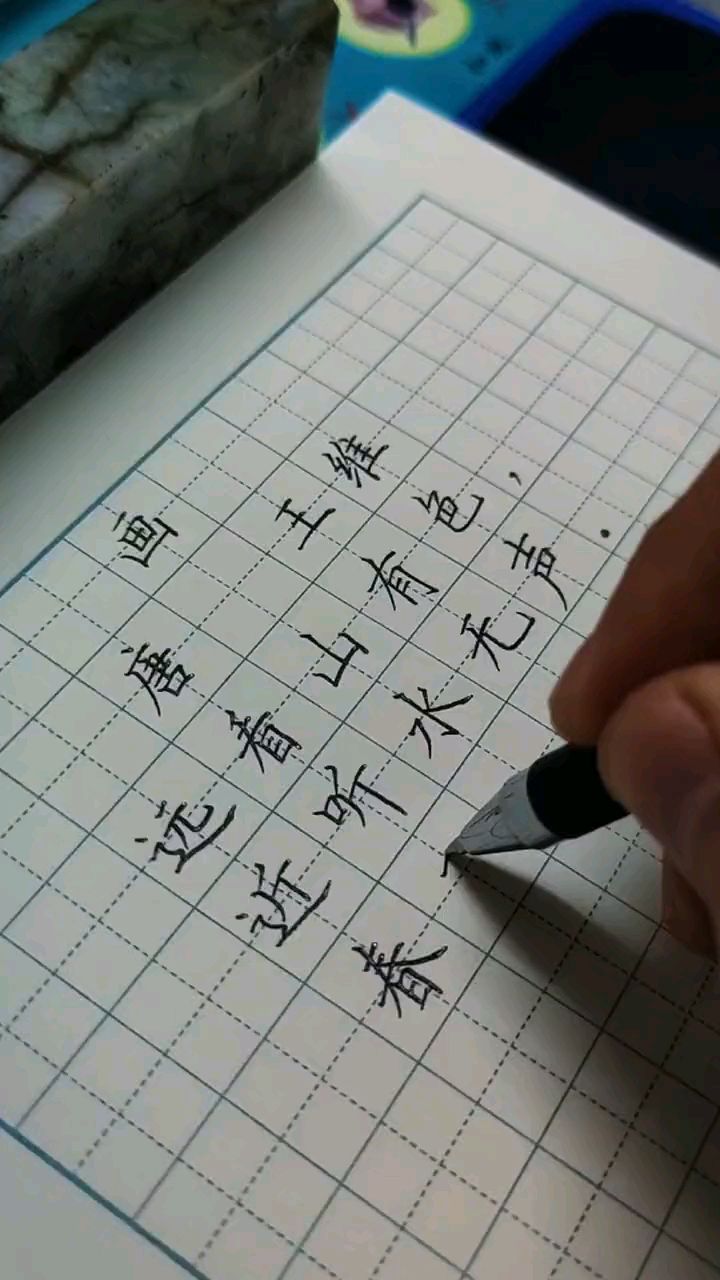 画
唐 王维
远看山有色，
近听水无声.
春